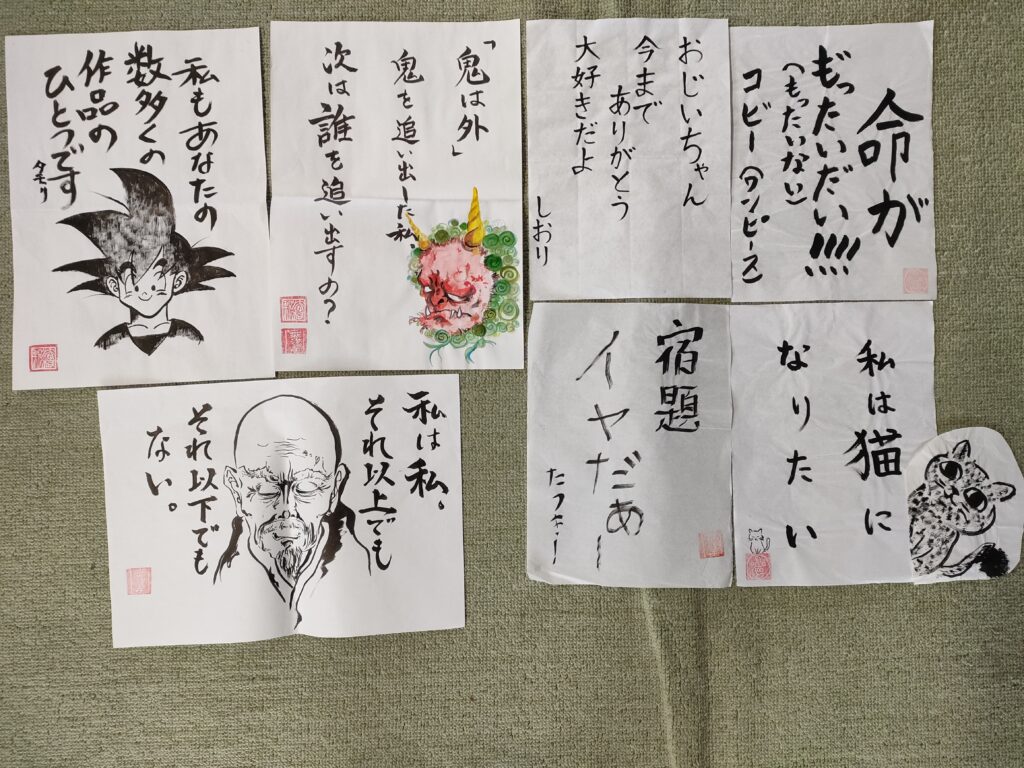 私もあなたの
数多くの
作品の
ひとつです
タモリ
「鬼は外」
鬼を追い出した私、
次は誰を追い出すの?
おじいちゃん
今まで
ありがとう
大好きだよ
しおり
命が
も゛ったいだい!!!!!
(もったいない)
コビー (ワンピース
私は私、
それ以上でも
それ以下でも
ない。
宿題
イヤだぁー
私は猫に
なりたい